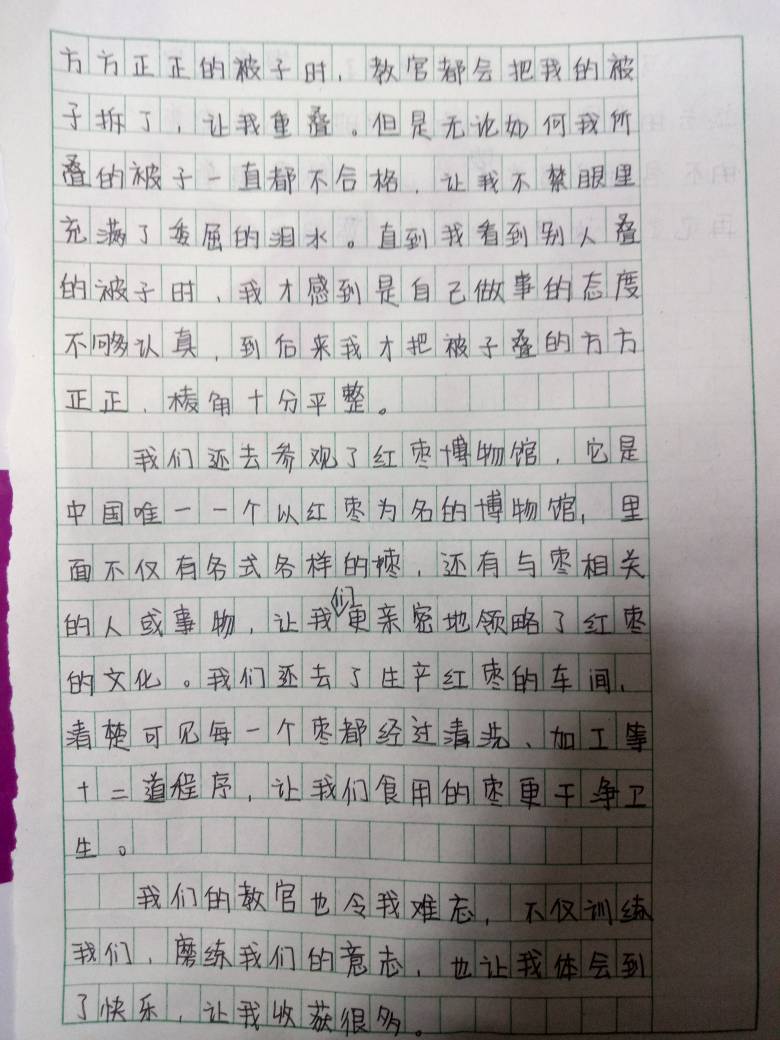 方方正正的被子时，教官都会把我的被
子拆了，让我重叠。但是无论如何我所
叠的被子一直都不合格，让我不禁眼里
充满了委屈的泪水。直到我看到别人叠
的被子时，我才感到是自己做事的态度
不够认真，到后来我才把被子叠的方方
正正，棱角十分平整。
我们还去参观了红枣博物馆，它是
中国唯一一个以红枣为名的博物馆，里
面不仅有各式各样的枣，还有与枣相关
的人或事物，让我们更亲密地领略了红枣
的文化。我们还去了生产红枣的车间，
清楚可见每一个枣都经过清洗、加工等
十二道程序，让我们食用的枣更干净卫
生。
我们的教官也令我难忘，不仅训练
我们，磨练我们的意志，也让我体会到
了快乐，让我收获很多。